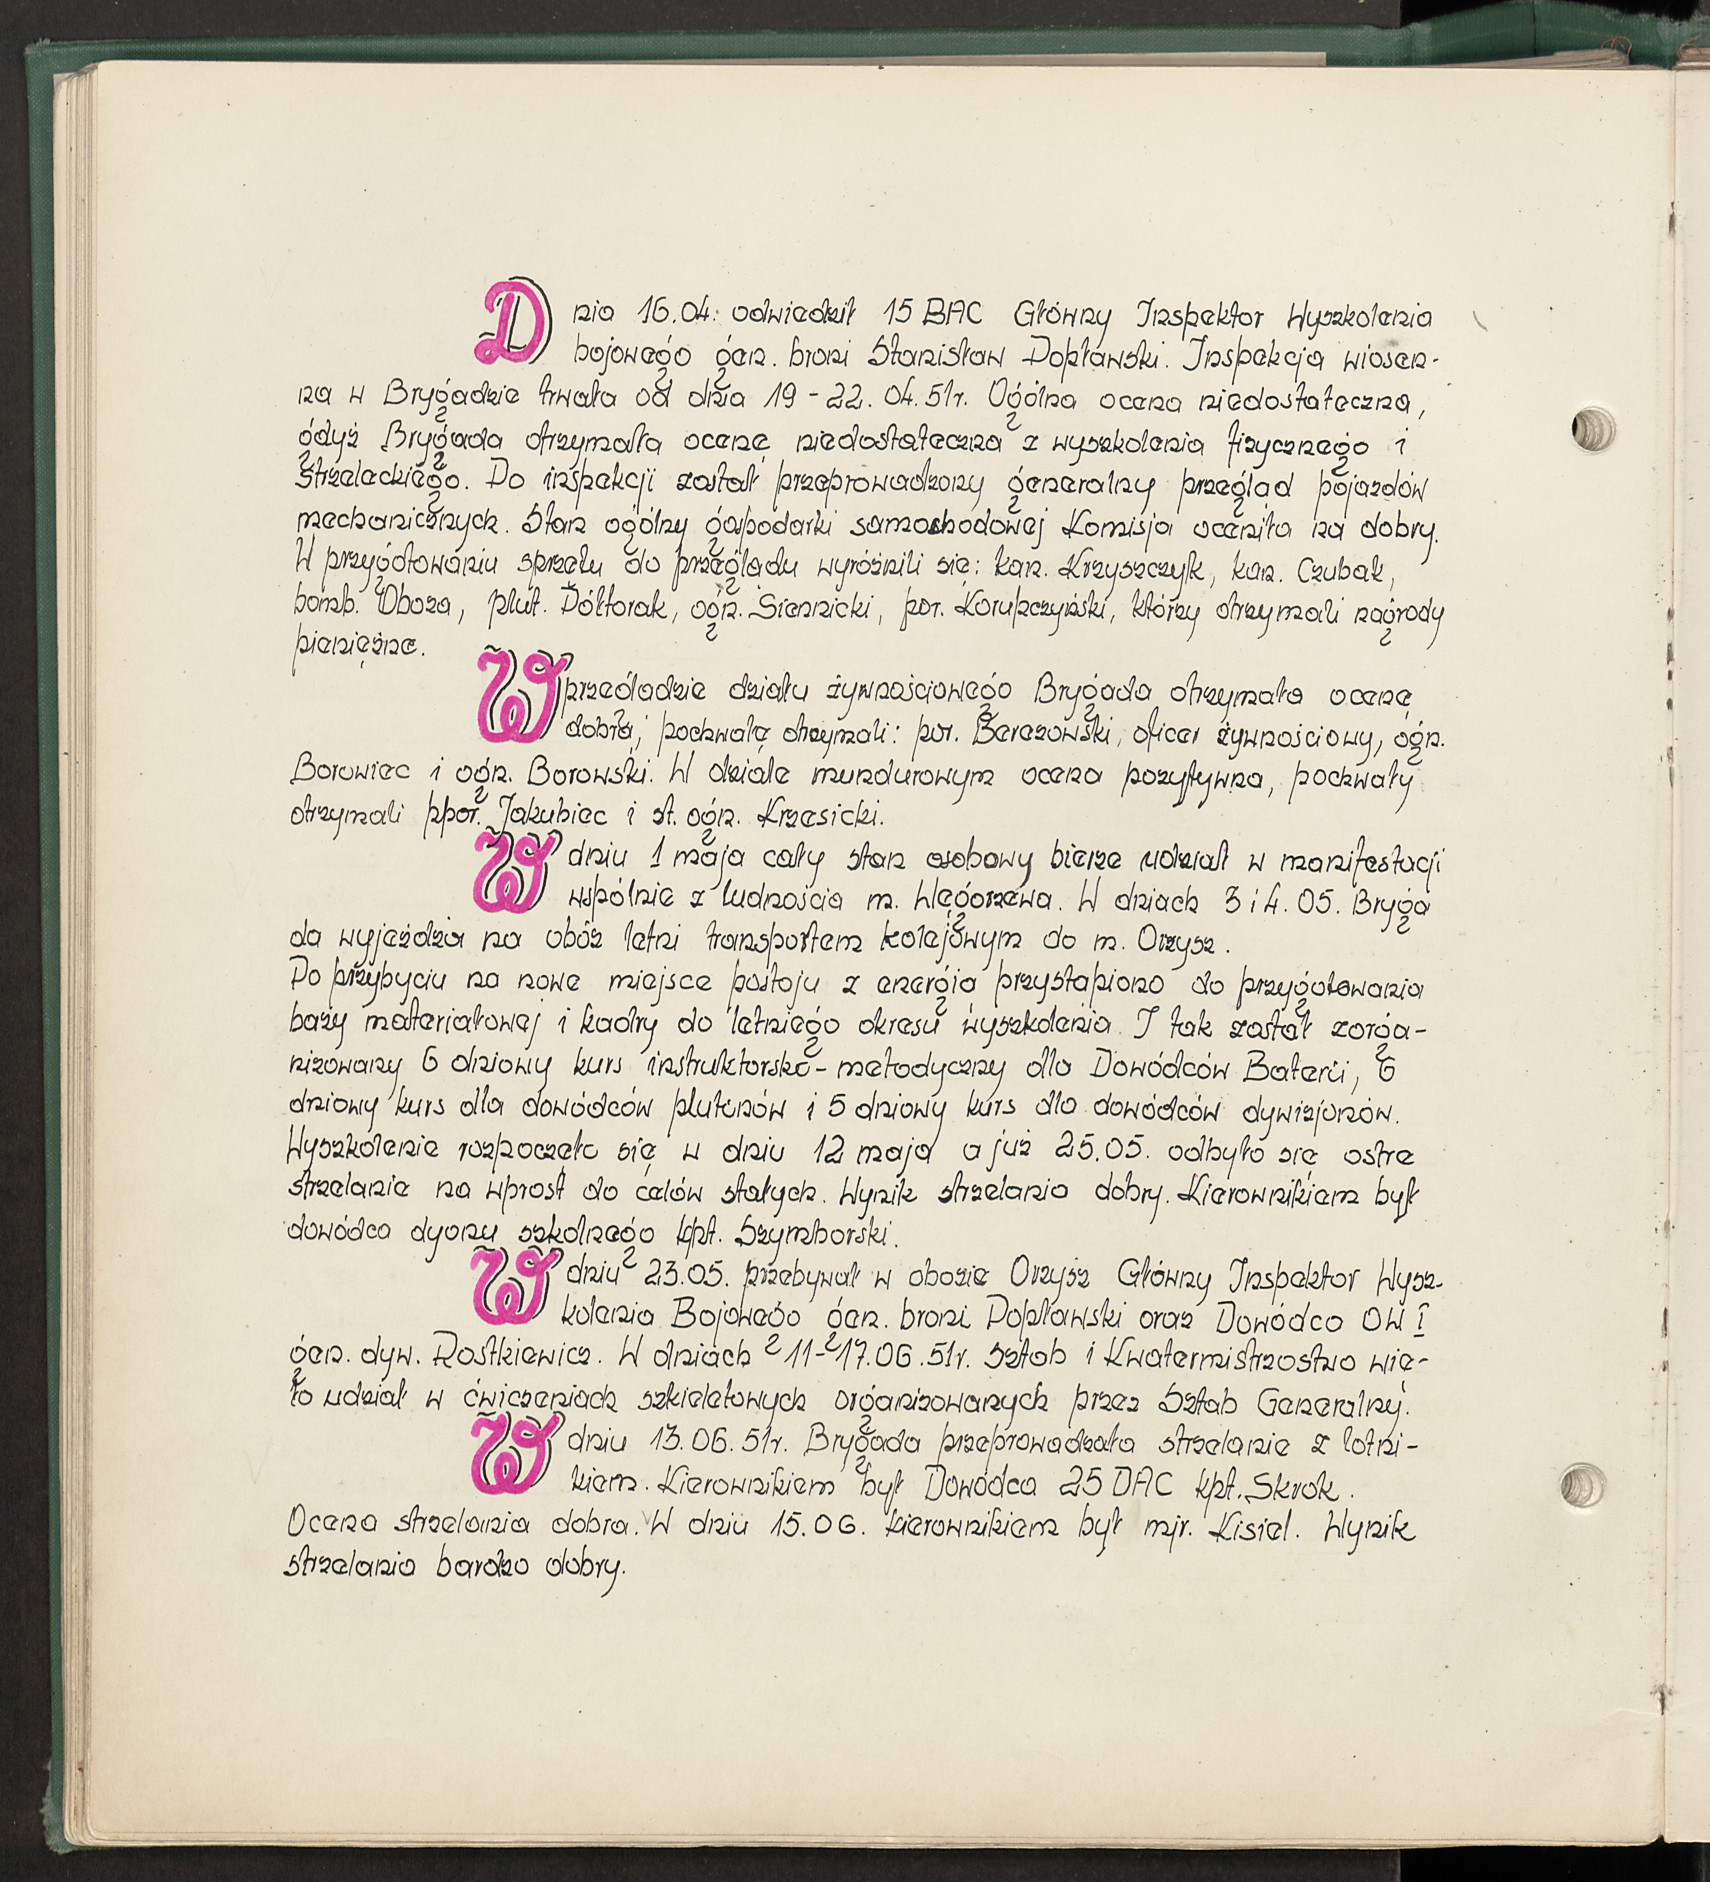 Dnia 16.04. odwiedził 15 BAC Główny Inspektor Wyszkolenia
bojowego gen. broni Stanisław Popławski. Inspekcja wiosen-
na w Brygadzie trwała od dnia 19-22.04.51r. Ogólna ocena niedostateczna,
gdyż Brygada otrzymała ocenę niedostateczna z wyszkolenia fizycznego i
strzeleckiego. Do inspekcji został przeprowadzony generalny przegląd pojazdów
mechanicznych. Stan ogólny gospodarki samochodowej Komisja oceniła na dobry.
W przygotowaniu sprzętu do przeglądu wyróżnili się: kan. Krzyszczyk, kan. Czubak,
bomb. Oboza, plut. Półtorak, ogn. Siennicki, por. Korupczyński, którzy otrzymali nagrody
pieniężne.
W przeglądzie działu żywnościowego Brygada otrzymała ocenę
dobrą, pochwałę otrzymali: por. Berezowski, oficer żywnościowy, ogn.
Borowiec i ogn. Borowski. W dziale mundurowym ocena pozytywna, pochwały
otrzymali ppor. Jakubiec i st. ogn. Krzesicki.
W dniu 1 maja cały stan osobowy bierze udział w manifestacji
wspólnie z ludnościa m. Węgorzewa. W dniach 3 i 4.05. Bryga
da wyjeżdża na obóz letni transportem kolejowym do m. Orzysz.
Po przybyciu na nowe miejsce postoju z energia przystąpiono do przygotowania
bazy materiałowej i kadry do letniego okresu wyszkolenia. I tak został zorga-
nizowany 6 dniowy kurs instruktorsko-metodyczny dla Dowódców Baterii, 6
dniowy kurs dla dowódców plutonów i 5 dniowy kurs dla dowódców dywizjonów.
Wyszkolenie rozpoczęło się w dniu 12 maja a już 25.05. odbyło się ostre
strzelanie na wprost do celów stałych. Wynik strzelania dobry. Kierownikiem był
dowódca dyonu szkolnego kpt. Szymborski.
W dniu 23.05. przebywał w obozie Orzysz Główny Inspektor Wysz-
kolenia Bojowego gen. broni Popławski oraz Dowódca OW I
gen. dyw. Rostkiewicz. W dniach 11-17.06.51r. Sztab i Kwatermistrzostwo wię-
ło udział w ćwiczeniach szkieletowych organizowanych przez Sztab Generalny.
W dniu 13.06.51r. Brygada przeprowadzała strzelanie z lotni-
kiem. Kierownikiem był Dowódca 25 DAC kpt. Skrok.
Ocena strzelania dobra. W dniu 15.06. kierownikiem był mjr. Kisiel. Wynik
strzelania bardzo dobry.